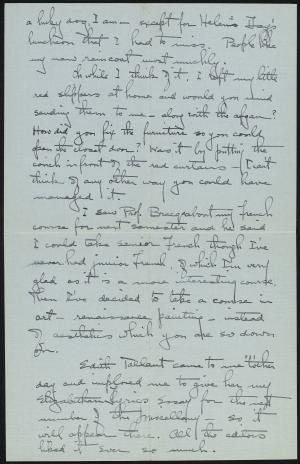 a lucky dog, I am – except for Helen's Day's
luncheon that I had to miss. People like
my new raincoat most muchly.
Oh while I think of it, I left my little
red slippers at home and would you mind
sending them to me along with the afgan?
How did you fix the furniture so you could
open the closet door? Was it by putting the
couch in front of the red curtains – I can't
think of any other way you could have
managed it.
I saw Prof. about my French
course for next semester and he said
I could take senior French though I've
never had junior French, of which I'm very
glad as it is a more interesting course.
Then I've decided to take a course in
art – renaissance painting – instead
of aesthetics which you are so down
on.
Edith Tallant came to me t'other
day and implored me to give her my
Elizabethan Lyrics essay for the next
number of the Miscellany – so it
will appear there. All the editors
liked it ever so much.